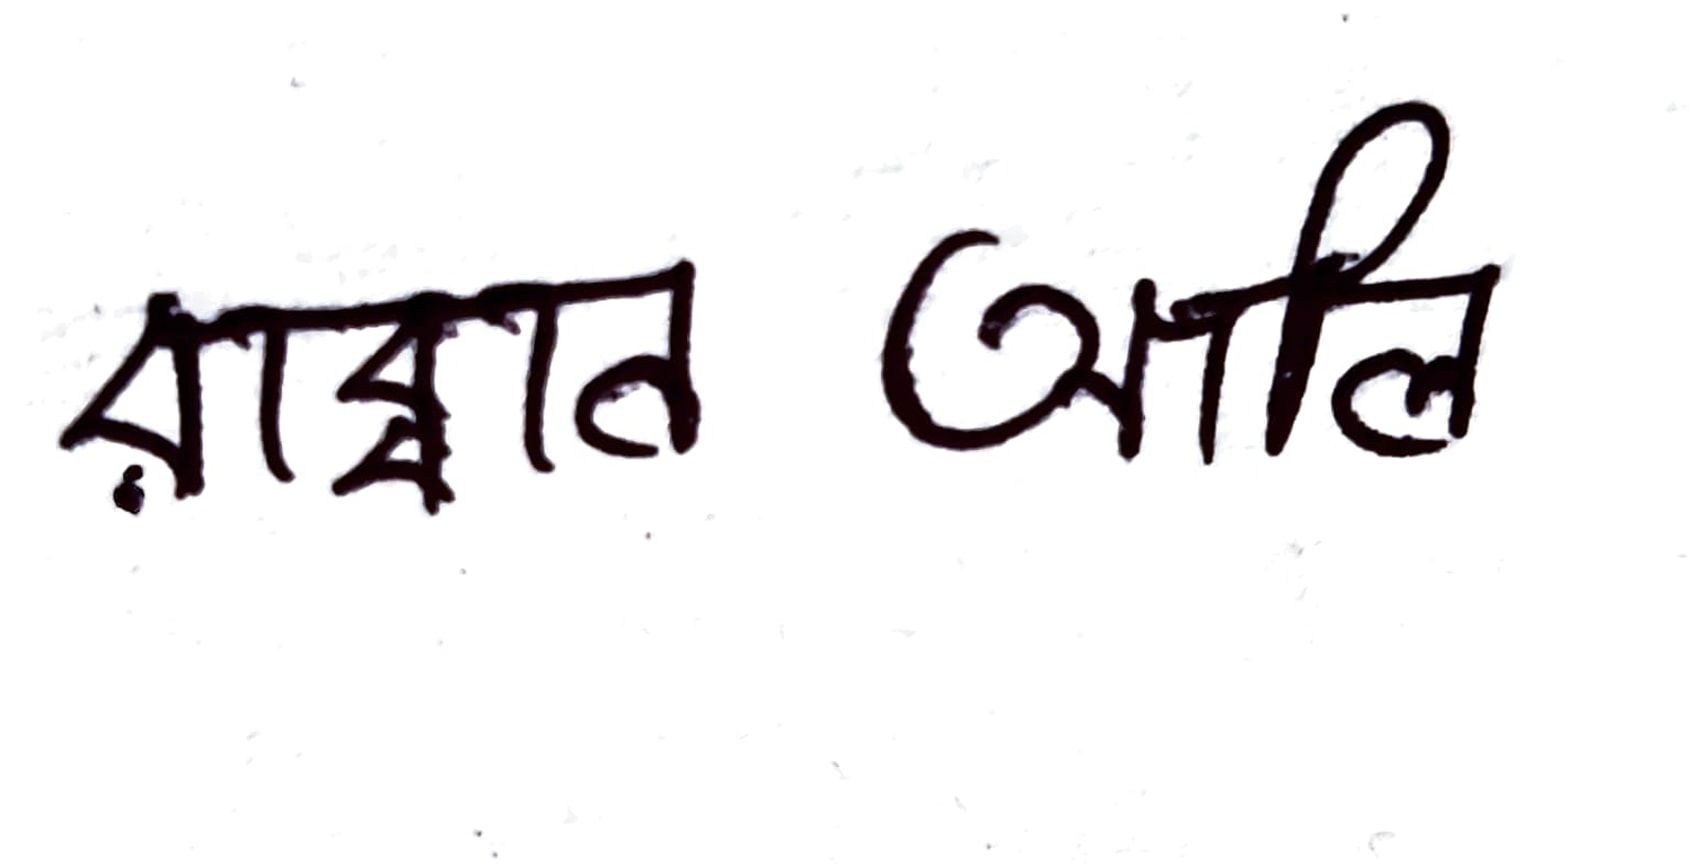 রাব্বান আলি